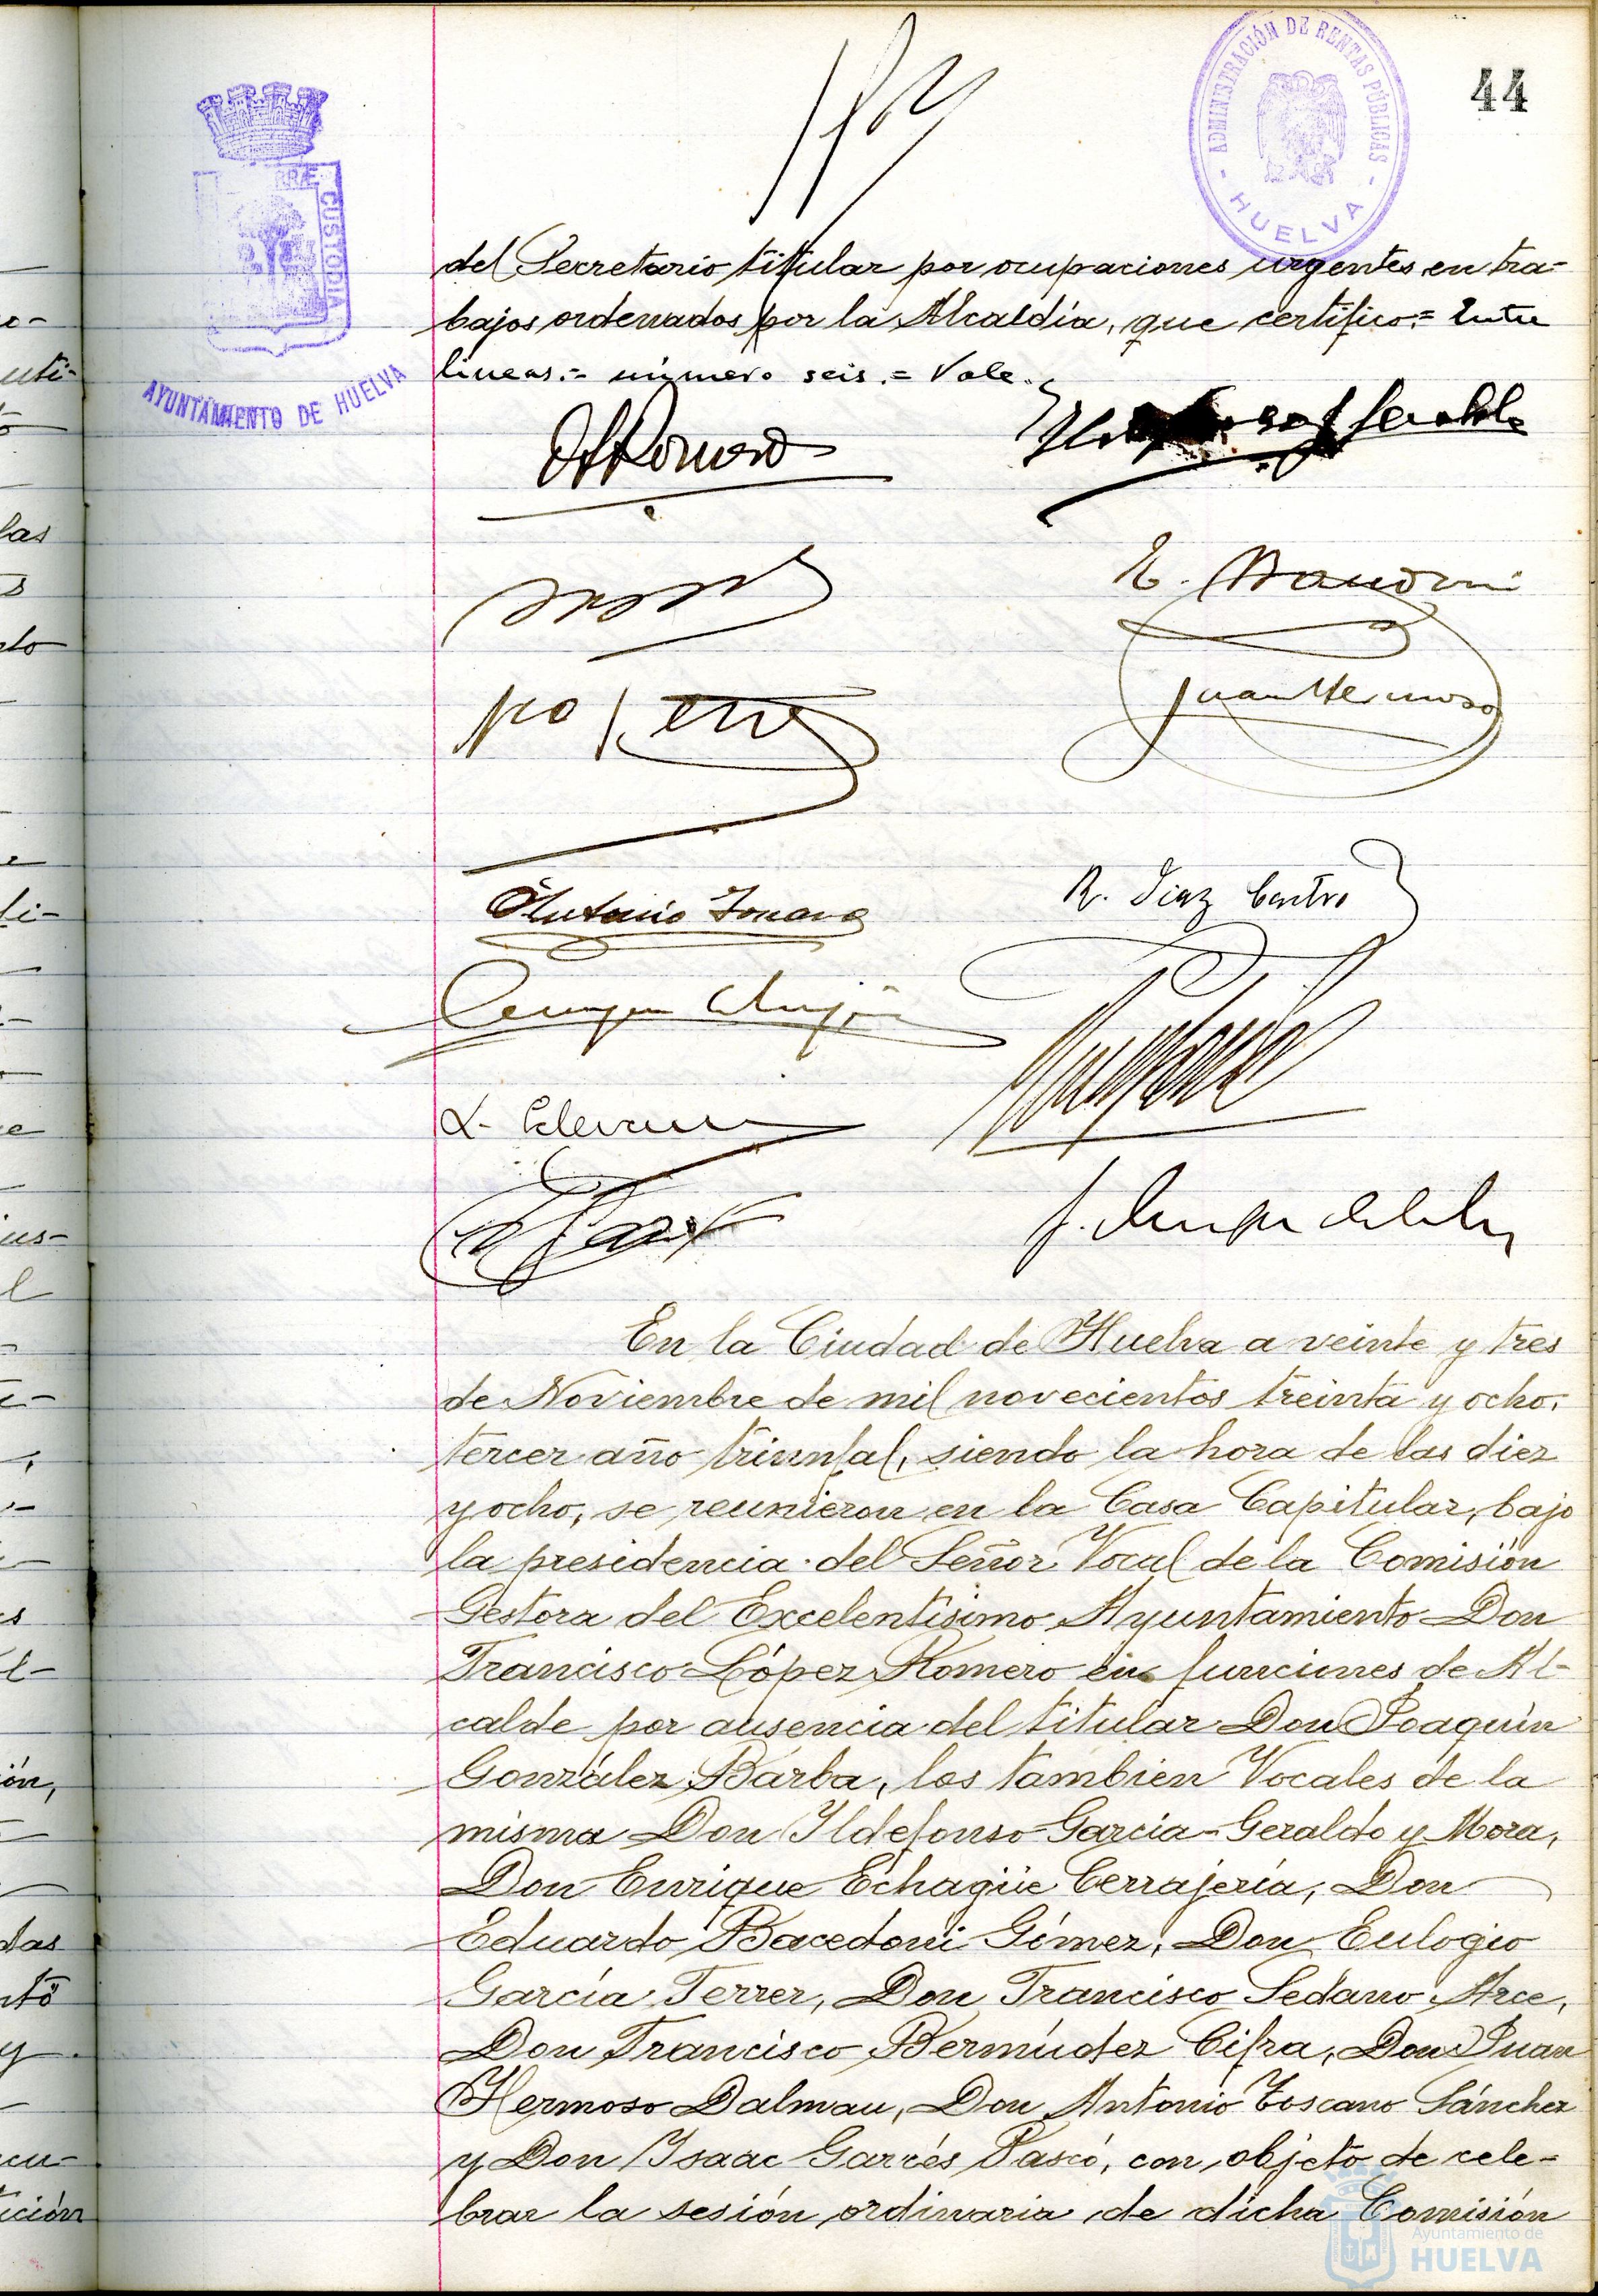 44
ADMINISTRACIÓN DE RENTAS PÚBLICAS
- HUELVA -
RRÆ CUSTODIA
AYUNTAMIENTO DE HUELVA
del Secretario titular por ocupaciones urgentes en tra-
bajos ordenados por la Alcaldía, que certifico.= Entre
lineas.= número seis.= Vale.
Juan Hermoso
R. Diaz Castro
En la Ciudad de Huelva a veinte y tres
de Noviembre de mil novecientos treinta y ocho,
tercer año triunfal, siendo la hora de las diez
y ocho, se reunieron en la Casa Capitular, bajo
la presidencia del Señor Vocal de la Comisión
Gestora del Excelentísimo Ayuntamiento Don
Francisco López Romero en funciones de Al-
calde por ausencia del titular Don Joaquín
González Barba, los tambien Vocales de la
misma Don Ildefonso García-Geraldo y Mora,
Don Enrique Echagüe Cerrajería, Don
Eduardo Bacedoni Gómez, Don Eulogio
García Ferrer, Don Francisco Sedano Arce,
Don Francisco Bermúdez Cifra, Don Juan
Hermoso Dalmau, Don Antonio Toscano Sánchez
y Don Isaac Garcés Pascó, con objeto de cele-
brar la sesión ordinaria de dicha Comisión
Ayuntamiento de
HUELVA